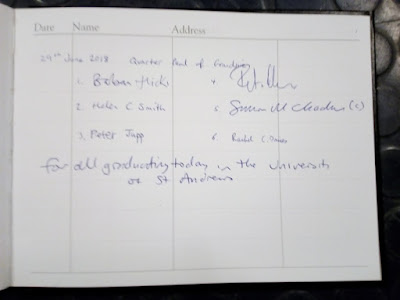 Date Name Address
29th June 2018 Quarter Peal of Grandsire
1.
2. Helen C Smith 5. Simon M (c)
3. Peter Jupp 6. Rachel C.
For all graduating today in the University
of St Andrews